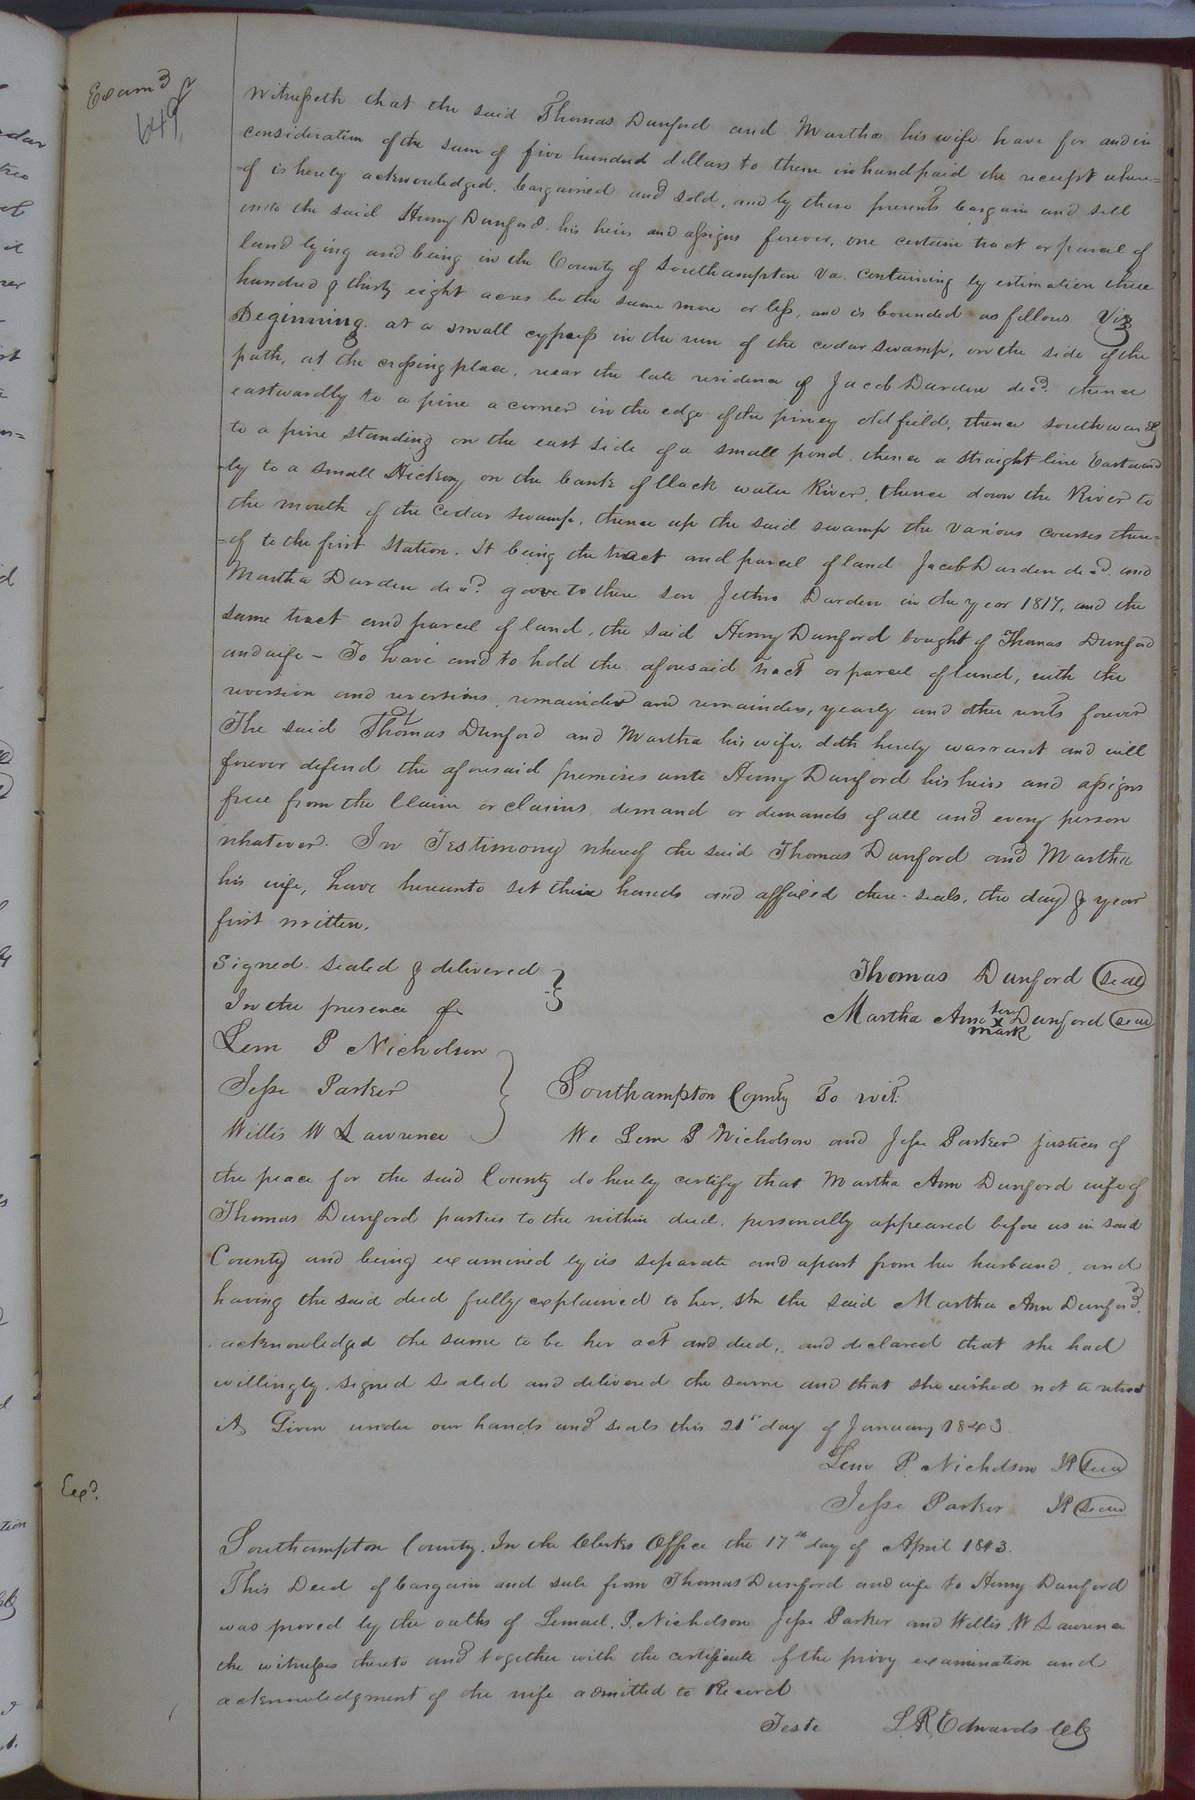 Exam^d
649
Witnesseth that the said Thomas Dunford and Martha his wife have for and in
consideration of the sum of five hundred dollars to them in hand paid the receipt where=
-of is hereby acknowledged, bargained and sold, and by these presents bargain and sell
unto the said Henry Dunford his heirs and assigns forever, one certain tract or parcel of
land lying and being in the County of Southampton Va. containing by estimation three
hundred & thirty eight acres be the same more or less, and is bounded as follows Viz
Beginning at a small cypress in the run of the cedar swamp, on the side of the
path, at the crossing place, near the late residence of Jacob Darden dec^d. thence
eastwardly to a pine a corner in the edge of the piney old field, thence southwardly
to a pine standing on the east side of a small pond. thence a straight line Eastward
-ly to a small Hickory on the bank of Black water River, thence down the River to
the mouth of the Cedar swamp, thence up the said swamp the various courses there=
=of to the first Station. It being the tract and parcel of land Jacob Darden dec^d. and
Martha Darden dec^d. gave to there son Jethro Darden in the year 1817, and the
same tract and parcel of land, the said Henry Dunford bought of Thomas Dunford
and wife - To have and to hold the aforesaid tract or parcel of land, with the
reversion and reversions, remainder and remainders, yearly and other rents forever
The said Thomas Dunford and Martha his wife, doth hereby warrant and will
forever defend the aforesaid premises unto Henry Dunford his heirs and assigns
free from the Claim or claims, demand or demands of all and every person
whatever. In Testimony whereof the said Thomas Dunford and Martha
his wife, have hereunto set their hands and affixed there seals, the day & year
first written.
Signed sealed & delivered
In the presence of
Thomas Dunford (seal)
Martha Ann her x mark Dunford (seal)
Lem P Nicholson
Jesse Parker
Willis W Lawrence
Southampton County To wit.
We Lem P Nicholson and Jesse Parker justices of
the peace for the said County do hereby certify that Martha Ann Dunford wife of
Thomas Dunford parties to the within deed, personally appeared before us in said
County and being examined by us separate and apart from her husband, and
having the said deed fully explained to her, she the said Martha Ann Dunford,
acknowledged the same to be her act and deed, and declared that she had
willingly signed sealed and delivered the same and that she wished not to retract
it, Given under our hands and seals this 21st day of January 1843
Lem P. Nicholson JP (seal)
Jesse Parker JP (seal)
Ex^d.
Southampton County. In the Clerks Office the 17th day of April 1843.
This Deed of bargain and sale from Thomas Dunford and wife to Henry Dunford
was proved by the oaths of Lemuel. P. Nicholson Jesse Parker and Willis W Lawrence
the witnesses thereto and together with the certificate of the privy examination and
acknowledgment of the wife admitted to Record
Teste L. R. Edwards Clk